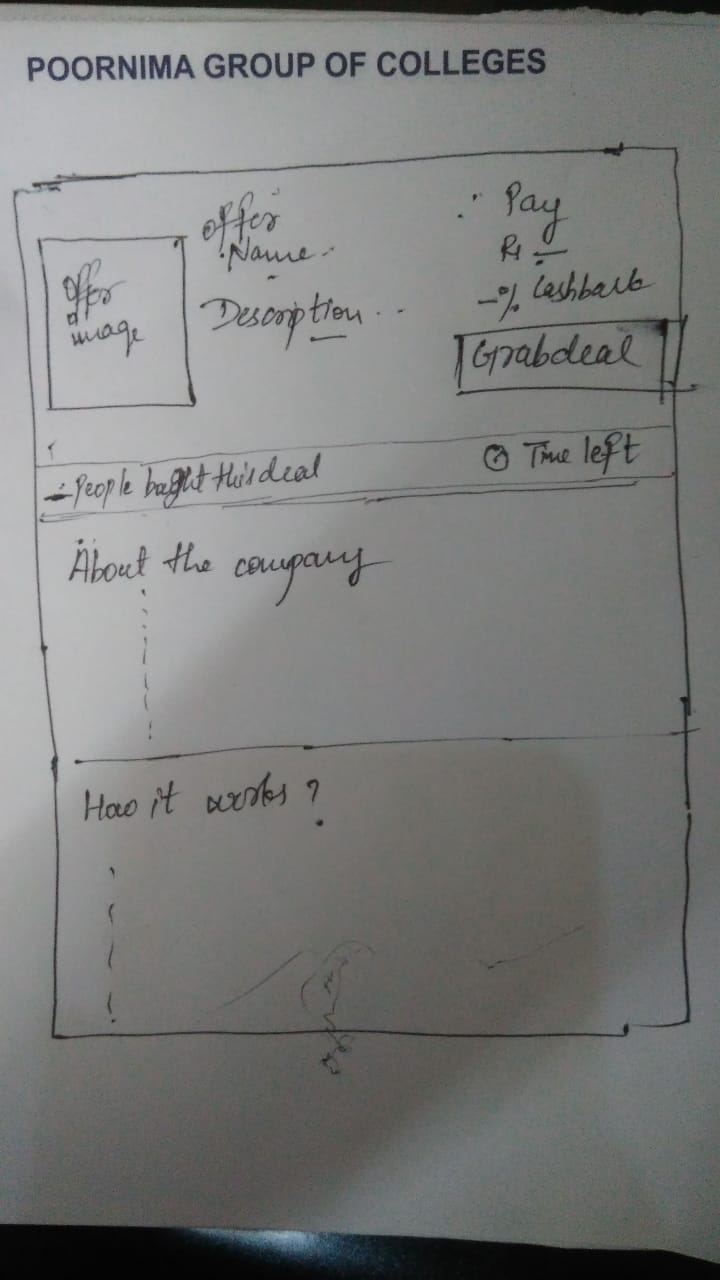 POORNIMA GROUP OF COLLEGES
Offer
Name
Description
Offer
image
Pay
Rs
-% Cashback
Grabdeal
- People bought this deal
Time left
About the company
How it works?